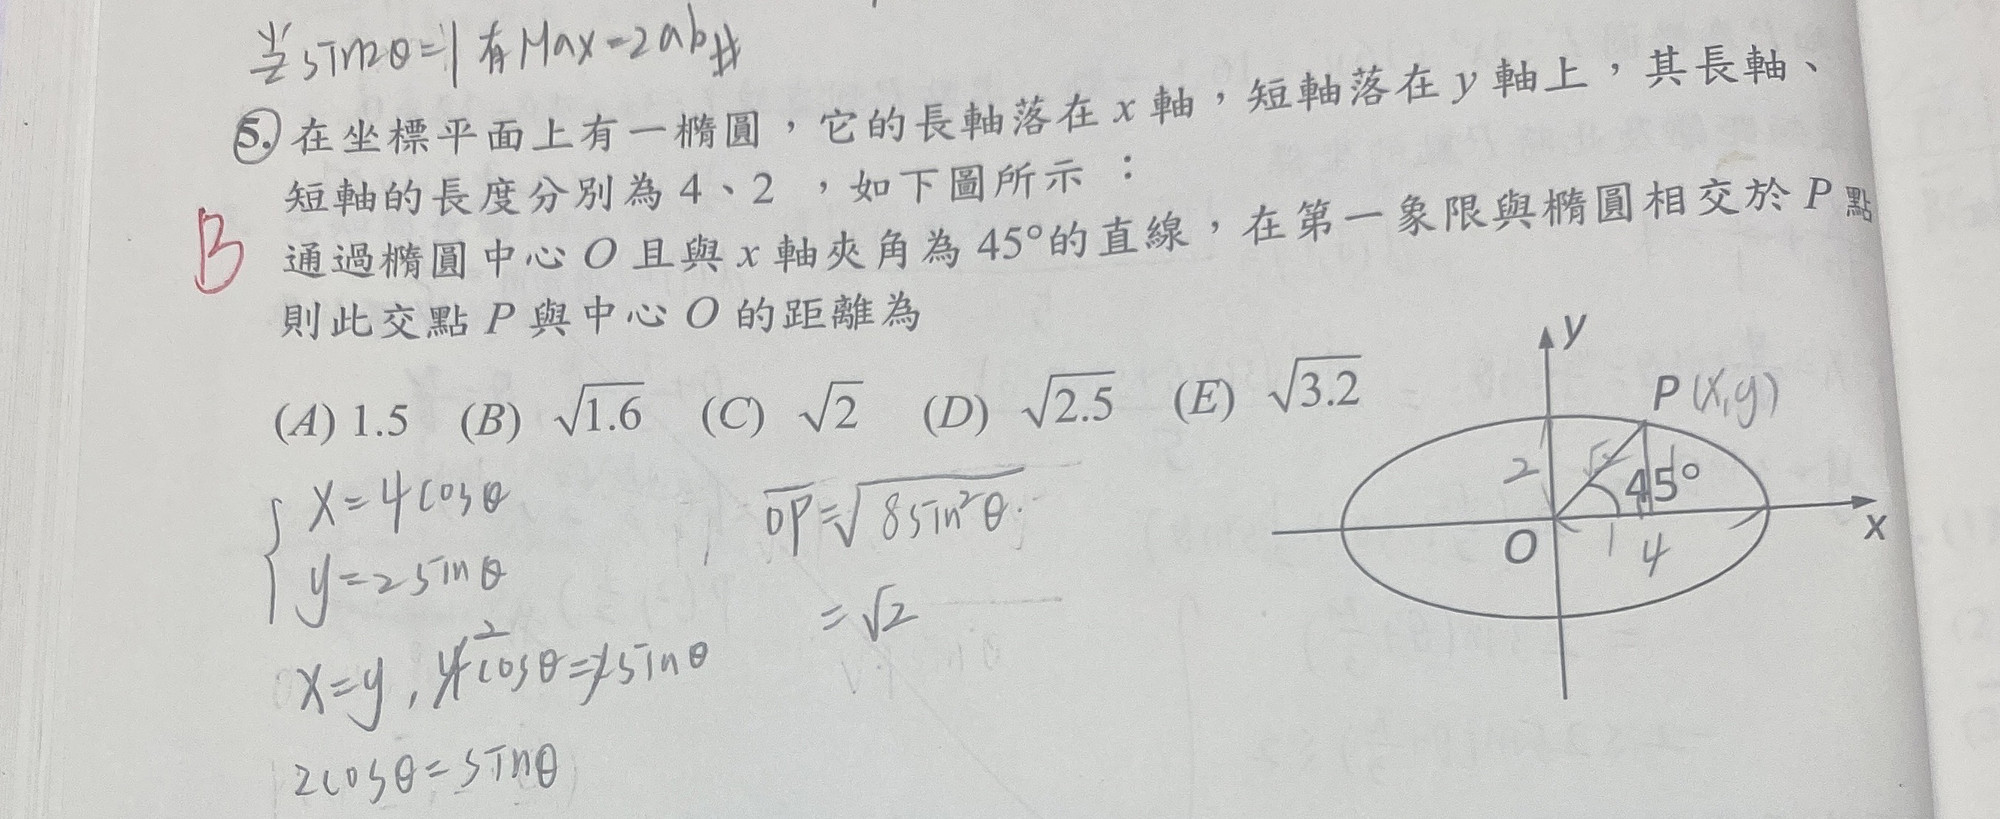 当sin2θ=1有Max=2ab#
5. 在坐標平面上有一橢圓，它的長軸落在 x 軸，短軸落在 y 軸上，其長軸、
短軸的長度分別為 4、2 ，如下圖所示：
B
通過橢圓中心 O 且與 x 軸夾角為 45°的直線，在第一象限與橢圓相交於 P 點
則此交點 P 與中心 O 的距離為
(A) 1.5 (B) √1.6 (C) √2 (D) √2.5 (E) √3.2
y
P (x,y)
2
45°
O
1
4
x
x=4cosθ
y=2sinθ
x=y, 4cosθ=2sinθ
2
2cosθ=sinθ
OP=√8sin²θ
=√2